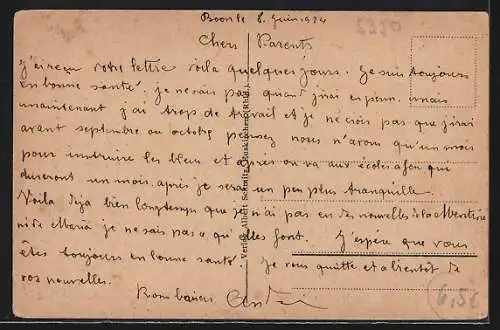 le 8. Juin 1924
5320
Chers Parents
J'ai reçu votre lettre voila quelques jours. Je suis toujours
en bonne santé. je ne sais pas quand j'irai en perm. mais
maintenant j'ai trop de travail et je ne crois pas que j'irai
avant septembre ou octobre pensez nous n'avons qu'un mois
pour instruire les bleus et après on va aux écoles à feu qui
dureront un mois, après je serai un peu plus tranquille.
Voila déja bien longtemps que je n'ai pas eu de nouvelles de la
ni de Maria je ne sais pas ce qu'elles font. J'espère que vous
êtes toujours en bonne santé. Je vous quitte et a bientot de
vos nouvelles.
Bons baisers
Verlag Albert Schmitz, Euskirchen (Rhld.)
6,5€